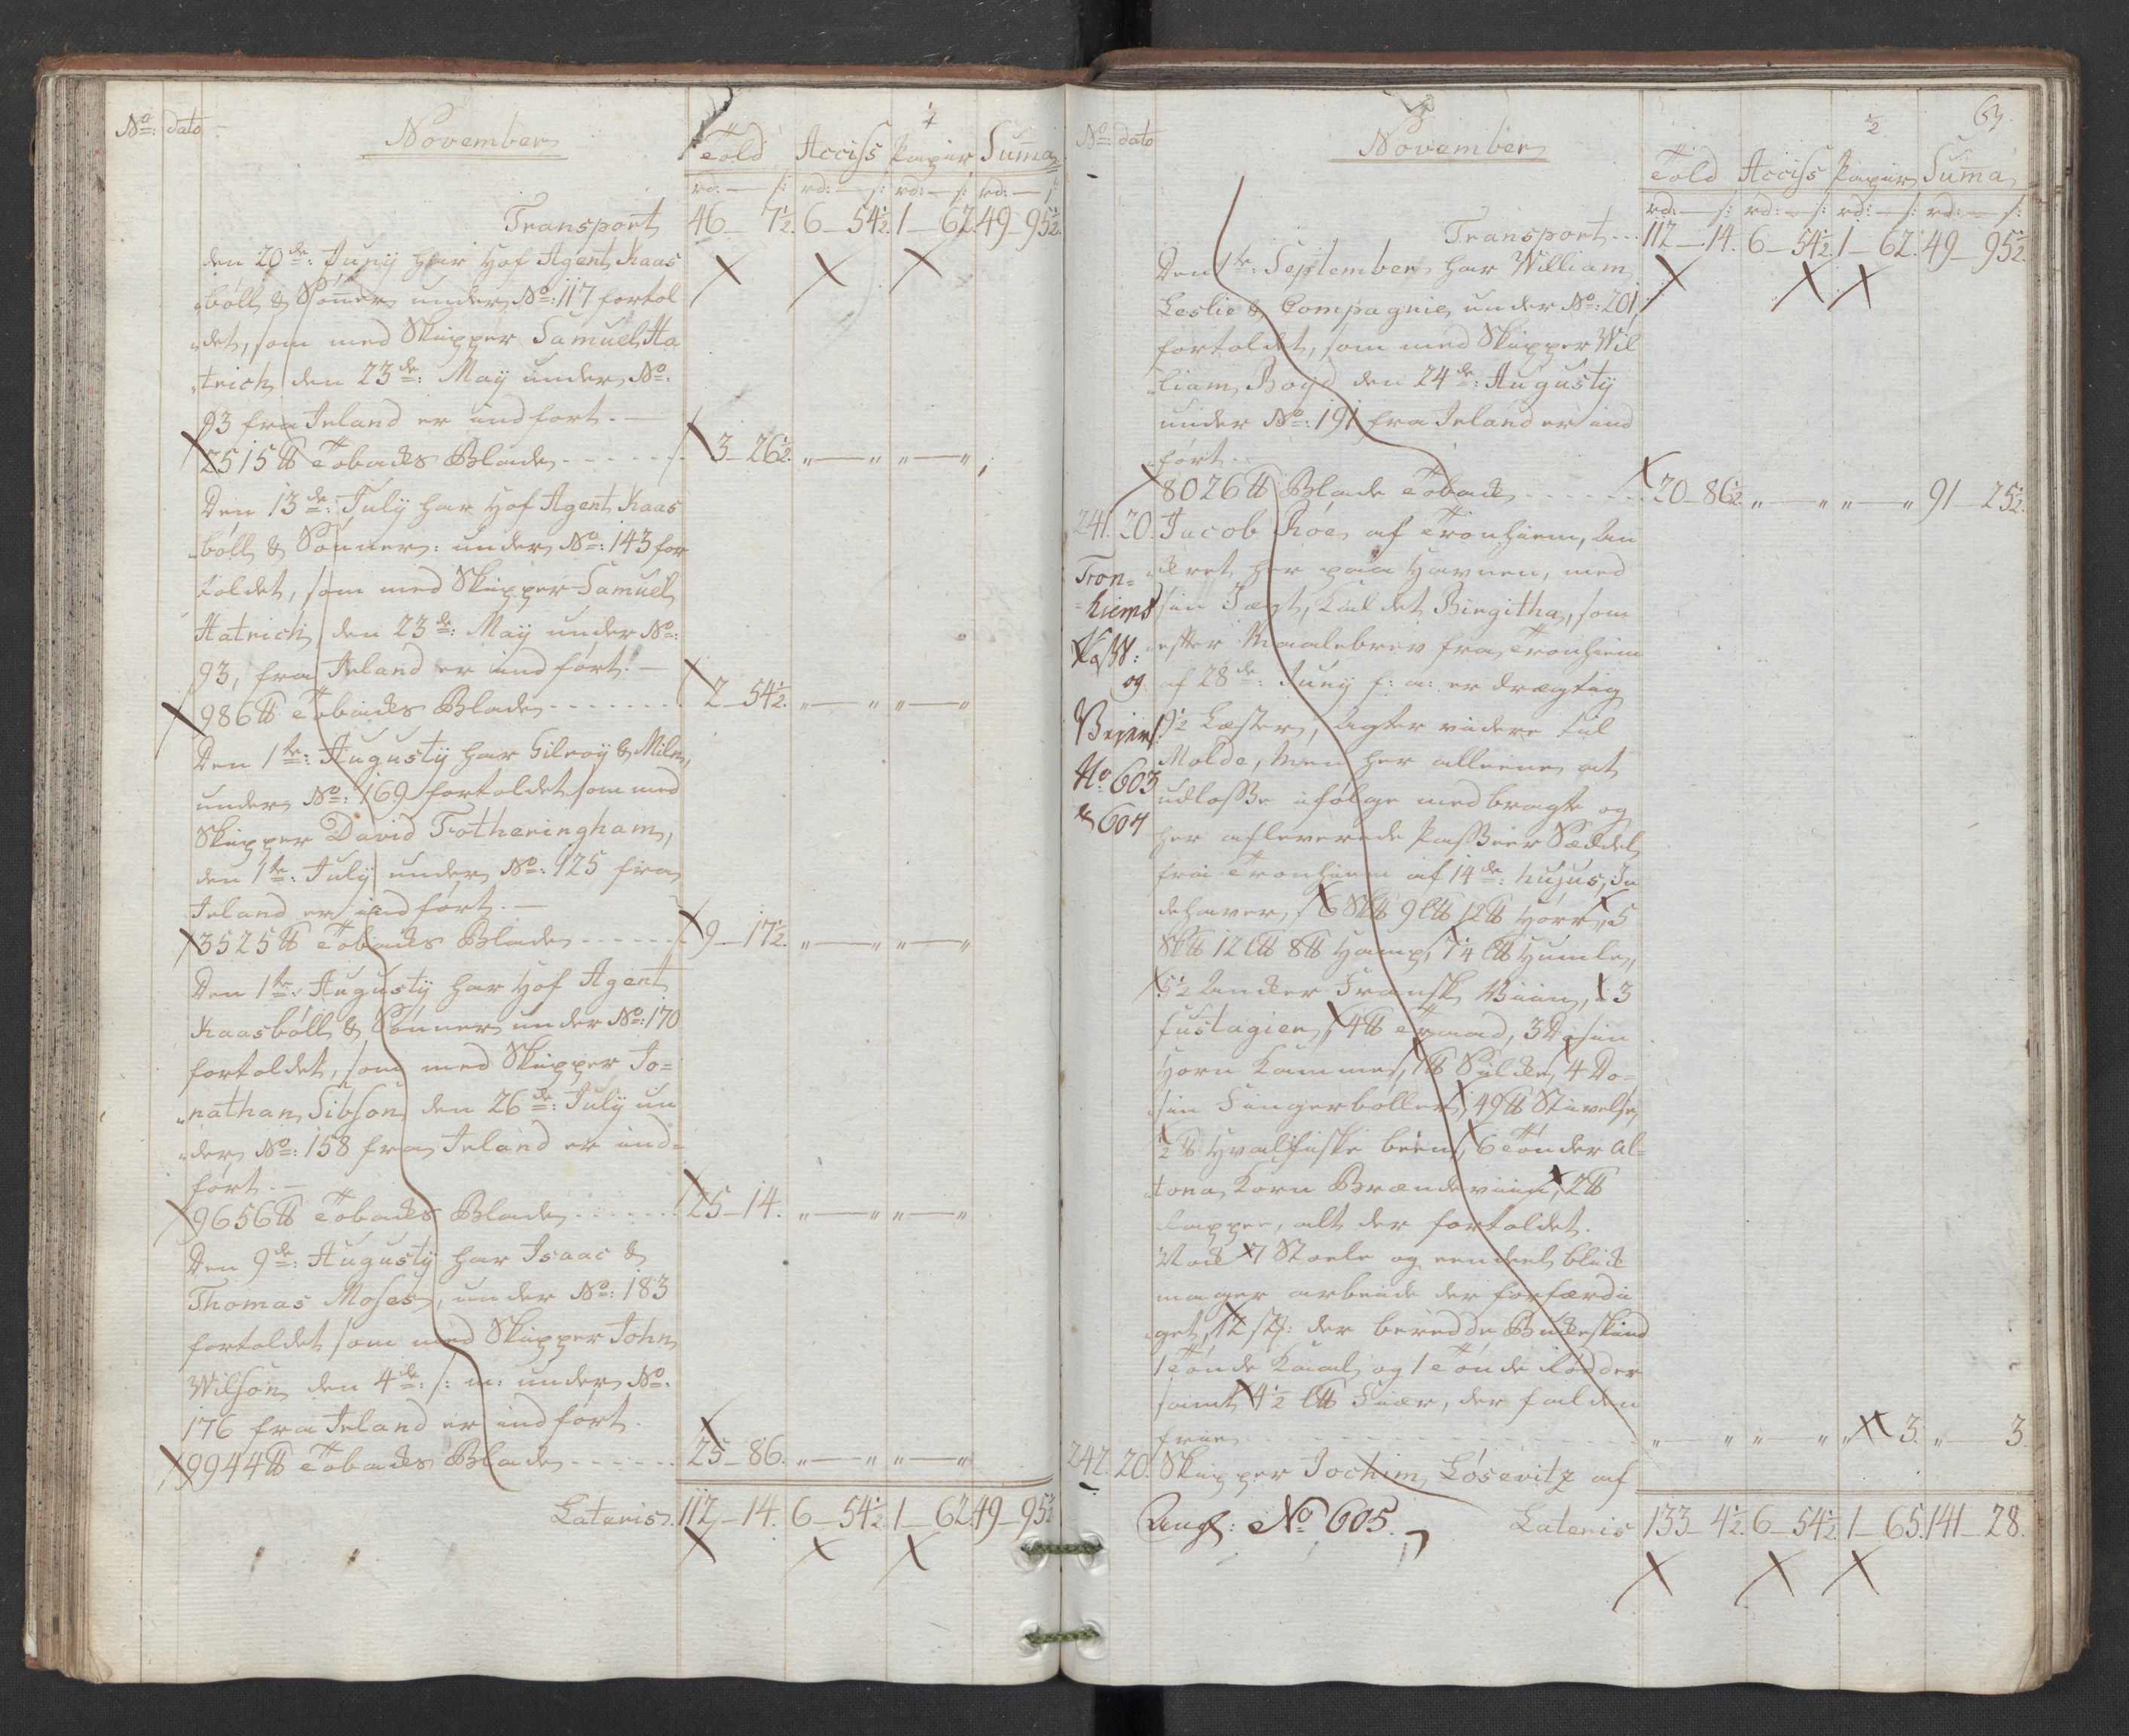 No: dato
November
Told Acciss Papiir Suma
rd: — s: rd: — s: rd: — s: rd: — s:
Transport 46_ 7½. 6_54½. 1_62. 49_95½.
den 20de: Juny har Hof Agent Kaas
böll & Sönner under No: 117 fortol
det, som med Skipper Samuel Ha
trich den 23de: May under No:
93 fra Irland er indfört. —
2515 ℔ Tobacks Blade - - - - - 3_26½. „—„ „—„
Den 13de: July har Hof Agent Kaas
böll & Sönner: under No: 143 for
toldet, som med Skipper Samuel
Hatrich, den 23de: May under No:
93, fra Irland er indfört. —
986 ℔ Tobacks Blade - - - - - - 2_54½. „—„ „—„
Den 1te: Augusty har Gilroy & Miln,
under No: 169 fortoldet som med
Skipper David Fotheringham,
den 1te: July under No: 125 fra
Irland er indfört. —
3525 ℔ Tobacks Blade - - - - - - 9_17½. „—„ „—„
Den 1te: Augusty har Hof Agent
Kaasböll & Sönner under No: 170
fortoldet, som med Skipper Jo=
nathan Sibson den 26de: July un
der No: 158 fra Irland er ind=
fört. —
9656 ℔ Tobacks Blade - - - - - - 25_14. „—„ „—„
Den 9de: Augusty har Isaac &
Thomas Moses, under No: 183
fortoldet som med Skipper John
Wilson den 4de: s: m: under No:
176 fra Irland er indfört.
9944 ℔ Tobacks Blade - - - - - - 25_86. „—„ „—„
Lateris. 112_14. 6_54½. 1_62. 49_95½
No: dato
November
½
67.
Told Acciss Papiir Suma
rd: — s: rd: — s: rd: — s: rd: — s:
Transport - - - 112_14. 6_54½. 1_62. 49_95½.
Den 1te: September har William
Leslie & Compagnie under No: 201,
fortoldet, som med Skipper Wil
liam Boyd den 24de: Augusty
under No: 191 fra Irland er ind
fört. -
8026 ℔ Blade Toback - - - - - - 20_86½. „—„ „—„ 91_25½.
241. 20. Jacob Röe af Tronhiem, An
kret her paa Havnen, med
Tron=
hiems
sin Jægt, kaldet Birgitha, som
efter Maalebrev fra Tronhiem
og af 28de: Juny f: a: er drægtig
9½ Læster, Agter videre til
Molde, men her alleene at
No 603
udlosse ifölge medbragte og
& 604
her afleverede Passeer Sæddel
fra Tronhiem af 14de: hujus, In
dehaver, 6 Sk℔ 9 L℔ 12 ℔ Hörr, 5
Sk℔ 12 L℔ 8 ℔ Hamp, 14 L℔ Humle,
5½ Ancker Fransk Viin, 3
fustagier, 4 ℔ Traad, 3 Dosin
Horn Kammer, 1 ℔ Silcke, 4 Do=
sin Fingerböller, 49 ℔ Stivelse,
½ ℔ Hvalfiske been, 6 Tönder Al=
tona Korn Brændeviin, 2 ℔
Papper, alt der fortoldet.
Nock 7 Stoele og een deel blick
mager arbeide der forfærdi
get, 12 st: der beredde Buckeskind
1 Tönde Kaal og 1 Tönde Rödder
samt 4½ L℔ Fiær, der falden
frie - - - - „—„ „—„ „ 3. „—3.
242. 20. Skipper Jochim Lösevitz af
Ang: No 605. Lateris 133_4½. 6_54½. 1_65. 141_28.